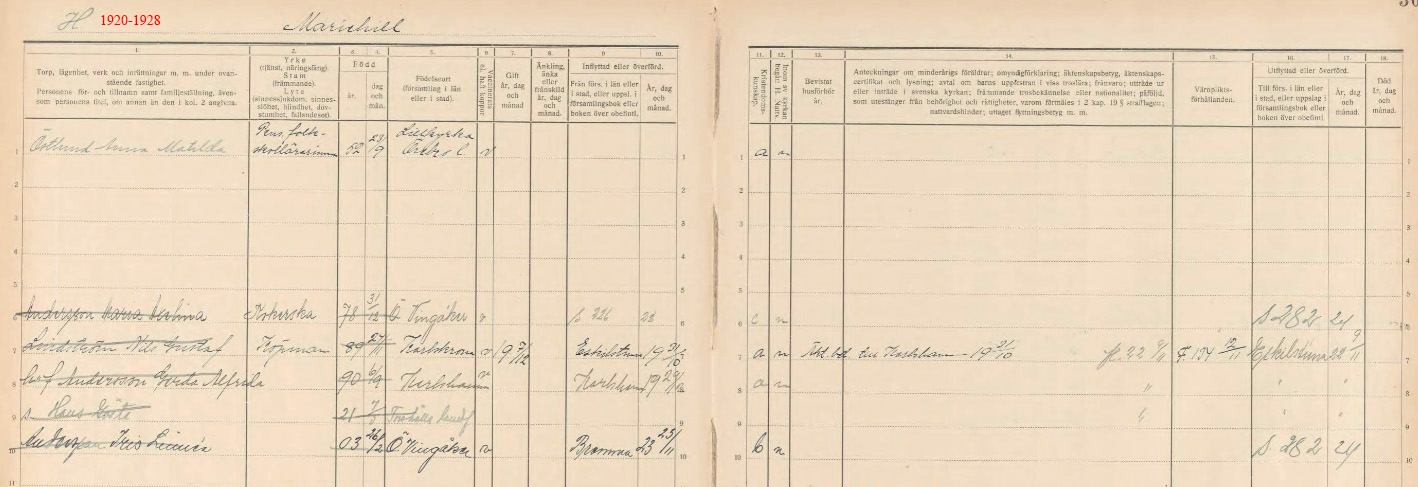 H 1920-1928 Mariehill
1. 2. 3. 4. 5. 6. 7. 8. 9. 10. 11. 12. 13. 14. 15. 16. 17. 18.
Torp, lägenhet, verk och inrättningar m. m. under ovan-
stående fastighet.
Personens för- och tillnamn samt familjeställning, även-
som personens titel, om annan än den i kol. 2 angivna.
Yrke
(tjänst, näringsfång)
Stam
(främmande).
Lyte
(sinnessjukdom, sinnes-
slöhet, blindhet, döv-
stumhet, fallandesot).
Född
år.
dag
och
mån.
Födelseort
(församling i län
eller i stad).
Gift
år, dag
och
månad
Änkling,
änka
eller
frånskild
år, dag
och
månad.
Inflyttad eller överförd.
Från förs. i län eller
i stad, eller uppsl. i
församlingsbok eller
boken över obefintl.
År, dag
och
månad.
Kristendoms-
kunskap.
Bevistat
husförhör
år.
Anteckningar om minderårigs föräldrar; omyndigförklaring; äktenskapsbetyg, äktenskaps-
certifikat och lysning; avtal om barns uppfostran i viss troslära; frånvaro; utträde ur
eller inträde i svenska kyrkan; främmande trosbekännelse eller nationalitet; påföljd,
som utestänger från behörighet och rättigheter, varom förmäles i 2 kap. 19 § strafflagen;
nattvardshinder; uttaget flyttningsbetyg m. m.
Värnplikts-
förhållanden.
Utflyttad eller överförd.
Till förs. i län eller
i stad, eller uppslag i
församlingsbok eller
boken över obefintl.
År, dag
och
månad.
Död
år, dag
och
månad.
1 Östlund Anna Matilda Pens. folk-
skollärarinna 52 23/9 Lillkyrka
Örebro l. v 1 1 a n 1
2 2 2 2
3 3 3 3
4 4 4 4
5 5 5 5
6 Andersson Maria Kokerska 78 31/12 Ö Vingåker v s. 226 23 6 6 c n s 282 24 6
7 Lindström Nils Gustaf Köpman 89 27/11 Karlskrona v 19 7/12 Eskilstuna 19 31/10 7 7 a n Karlshamn 19 fl. 22 9/11 F. 134 12/11 Eskilstuna 22 9/11 7
8 Andersson Gerda Alfrida 90 6/9 Karlshamn v Karlshamn 19 8 8 a n " " " 8
9 s. Hans Gösta 21 9 9 " " " 9
10 Andersson Iris Linnéa 03 26/12 Ö Vingåker v Bromma 23 23/11 10 10 b n s. 282 24 10
11